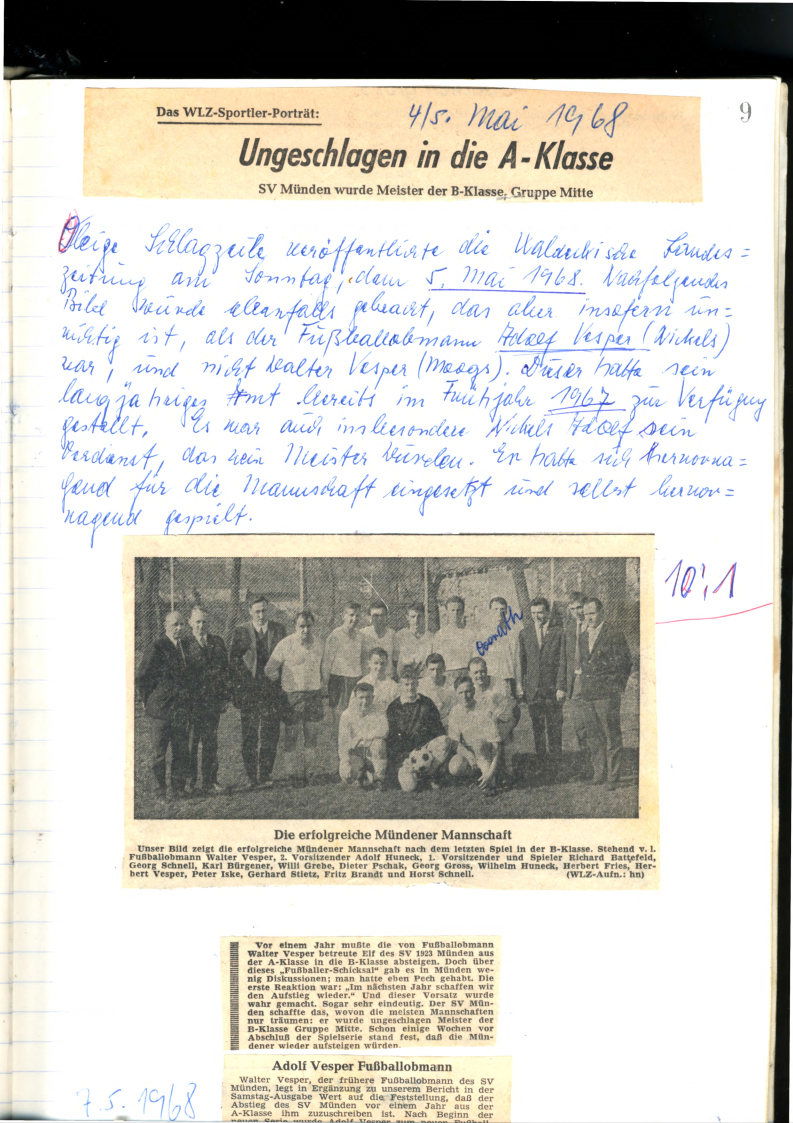 9
Das WLZ-Sportler-Porträt:
4/5. Mai 1968
Ungeschlagen in die A-Klasse
SV Münden wurde Meister der B-Klasse, Gruppe Mitte
Obige Schlagzeile veröffentlichte die Waldeckische Landes=
zeitung am Sonntag, dem 5. Mai 1968. Nachfolgendes
Bild wurde ebenfalls gebracht, das aber insofern un=
richtig ist, als der Fußballobmann Adolf Vesper (Nickels)
war, und nicht Walter Vesper (Moogs). Dieser hatte sein
langjähriges Amt bereits im Frühjahr 1967 zur Verfügung
gestellt. Es war auch insbesondere Nickels Adolf sein
Verdienst, das wir Meister wurden. Er hatte sich hervorra=
gend für die Mannschaft eingesetzt und selbst hervor=
ragend gespielt.
10:1
Die erfolgreiche Mündener Mannschaft
Unser Bild zeigt die erfolgreiche Mündener Mannschaft nach dem letzten Spiel in der B-Klasse. Stehend v. l.
Fußballobmann Walter Vesper, 2. Vorsitzender Adolf Huneck, 1. Vorsitzender und Spieler Richard Battefeld,
Georg Schnell, Karl Bürgener, Willi Grebe, Dieter Pschak, Georg Gross, Wilhelm Huneck, Herbert Fries, Her-
bert Vesper, Peter Iske, Gerhard Stietz, Fritz Brandt und Horst Schnell. (WLZ-Aufn.: hn)
Vor einem Jahr mußte die von Fußballobmann
Walter Vesper betreute Elf des SV 1923 Münden aus
der A-Klasse in die B-Klasse absteigen. Doch über
dieses „Fußballer-Schicksal“ gab es in Münden we-
nig Diskussionen; man hatte eben Pech gehabt. Die
erste Reaktion war: „Im nächsten Jahr schaffen wir
den Aufstieg wieder.“ Und dieser Vorsatz wurde
wahr gemacht. Sogar sehr eindeutig. Der SV Mün-
den schaffte das, wovon die meisten Mannschaften
nur träumen: er wurde ungeschlagen Meister der
B-Klasse Gruppe Mitte. Schon einige Wochen vor
Abschluß der Spielserie stand fest, daß die Mün-
dener wieder aufsteigen würden.
Adolf Vesper Fußballobmann
Walter Vesper, der frühere Fußballobmann des SV
Münden, legt in Ergänzung zu unserem Bericht in der
Samstag-Ausgabe Wert auf die Feststellung, daß der
Abstieg des SV Münden vor einem Jahr aus der
A-Klasse ihm zuzuschreiben ist. Nach Beginn der
neuen Serie wurde Adolf Vesper zum neuen Fußball-
7.5.1968